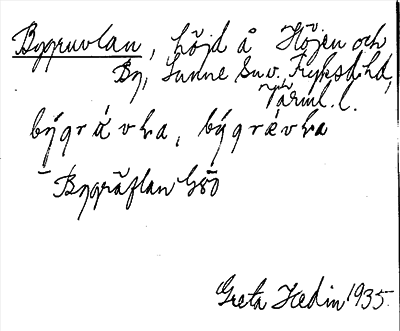 Bygruvlan, höjd å Höjen och
By, Sunne sn., Fryksd. hd,
Värml. l.
býgrávla, býgrávla
Bygräflan GSÖ
Greta Hedin 1935.